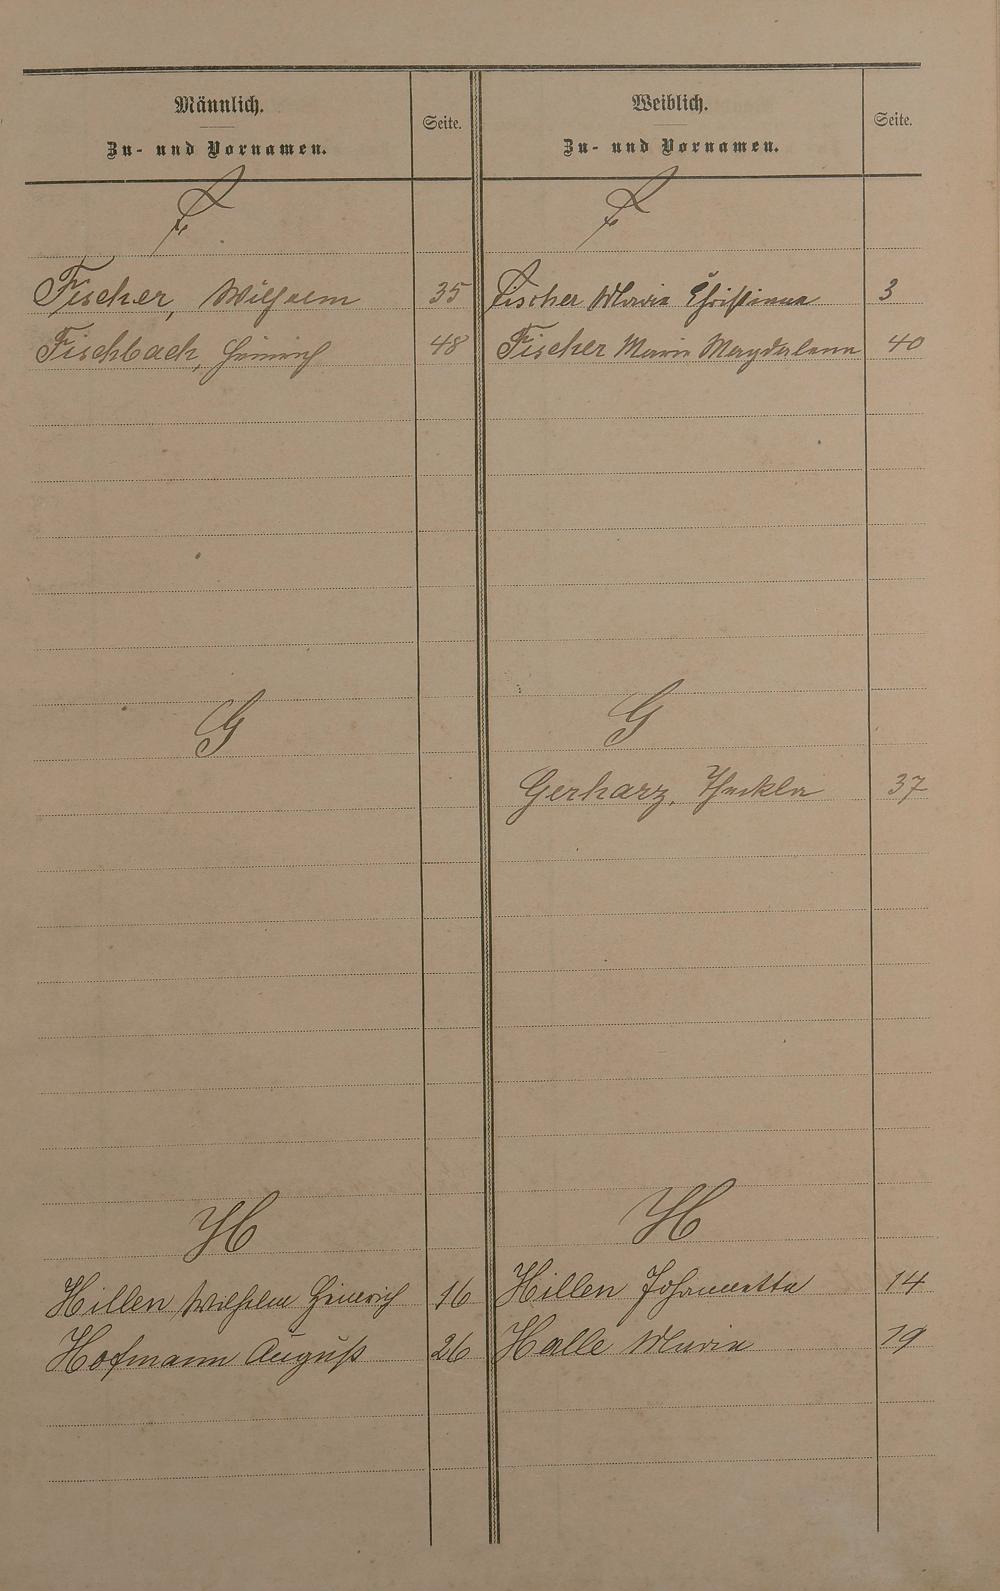 Männlich.
Zu- und Vornamen.
Seite.
Weiblich.
Zu- und Vornamen.
Seite.
F
F
Fischer, Wilhelm 35
Fischer Maria Christiana 3
Fischbach, Heinrich 48
Fischer Maria Magdalena 40
G
G
Gerharz, Theckla 37
H
H
Hillen Wilhelm Heinrich 16
Hillen Johannetta 14
Hofmann August 26
Halle Maria 19